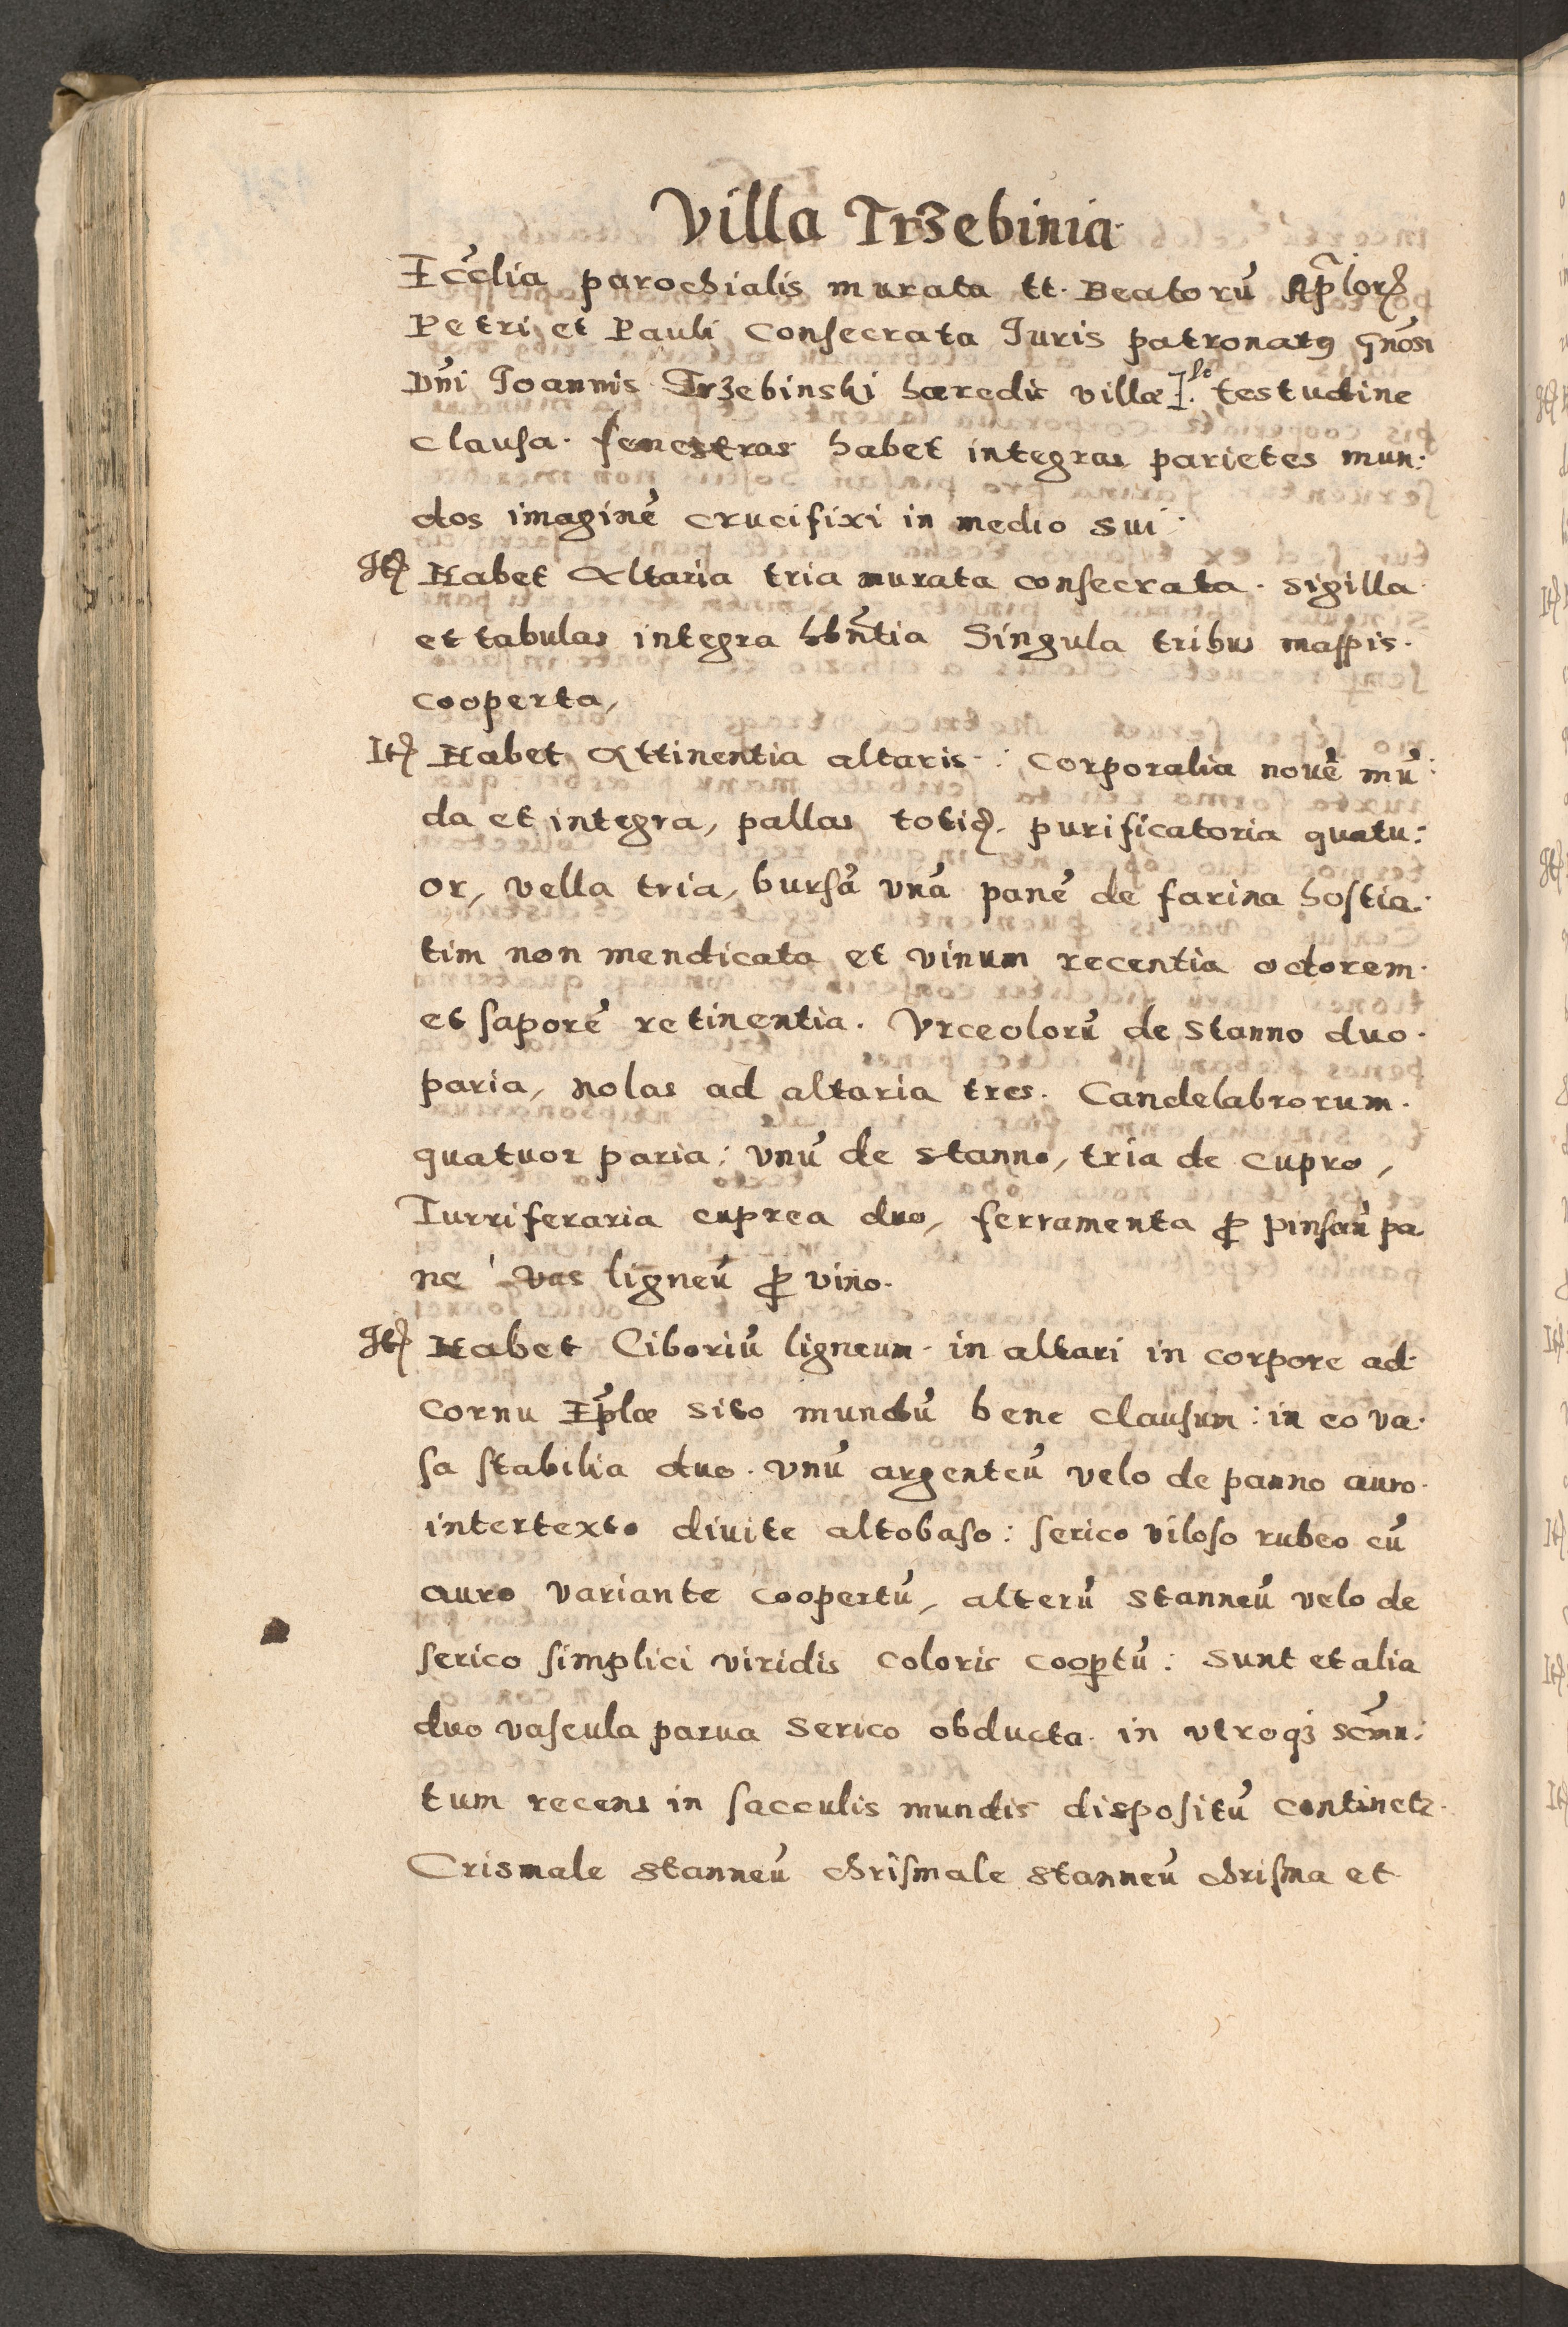 Villa Trzebinia
Eccłia parochialis murata tt. Beatorū Apłorꝝ
Petri et Pauli Consecrata Juris patronatꝰ Gñosi
Dñi Joannis Trzebinski hæredis villæ testudine
clausa. fenestras habet integras parietes mun:
dos imaginē crucifixi in medio sui.
Itē Habet Altaria tria murata consecrata. sigilla
et tabulas integra hñtia Singula tribus mappis.
cooperta,
Itē Habet Attinentia altaris: Corporalia nouē mū:
da et integra, pallas totiđ. purificatoria quatu:
or, vella tria, bursā vnā panē de farina hostia:
tim non mendicata et vinum recentia odorem.
et saporē retinentia. Vrceolorū de stanno duo.
paria, nolas ad altaria tres. Candelabrorum.
quatuor paria: vnū de stanno, tria de cupro,
Turriferaria cuprea duo, ferramenta ꝓ pinsan̄ pa
ne vas ligneū ꝓ vino.
Itē Habet Ciboriū ligneum in altari in corpore ad
cornu Epłæ sito mundū bene clausum: in eo va:
sa stabilia duo. vnū argenteū velo de panno auro.
intertexto diuite altobaso: serico viloso rubeo cū
auro variante coopertū, alterū stanneū velo de
serico simplici viridis coloris coop̱tū: sunt et alia
duo vascula parua serico obducta. in vtroqꝫ scm̄:
tum recens in sacculis mundis dispositū continetr.
Crismale stanneū chrismale stanneū chrisma et